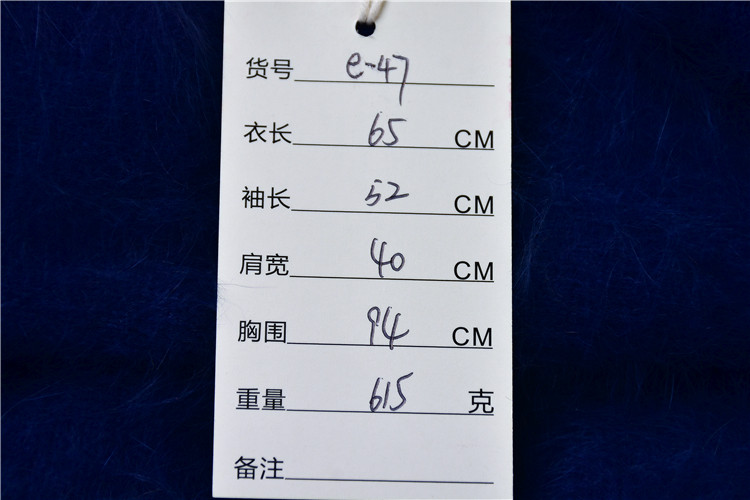 货号 e-47
衣长 65 CM
袖长 52 CM
肩宽 40 CM
胸围 94 CM
重量 615 克
备注